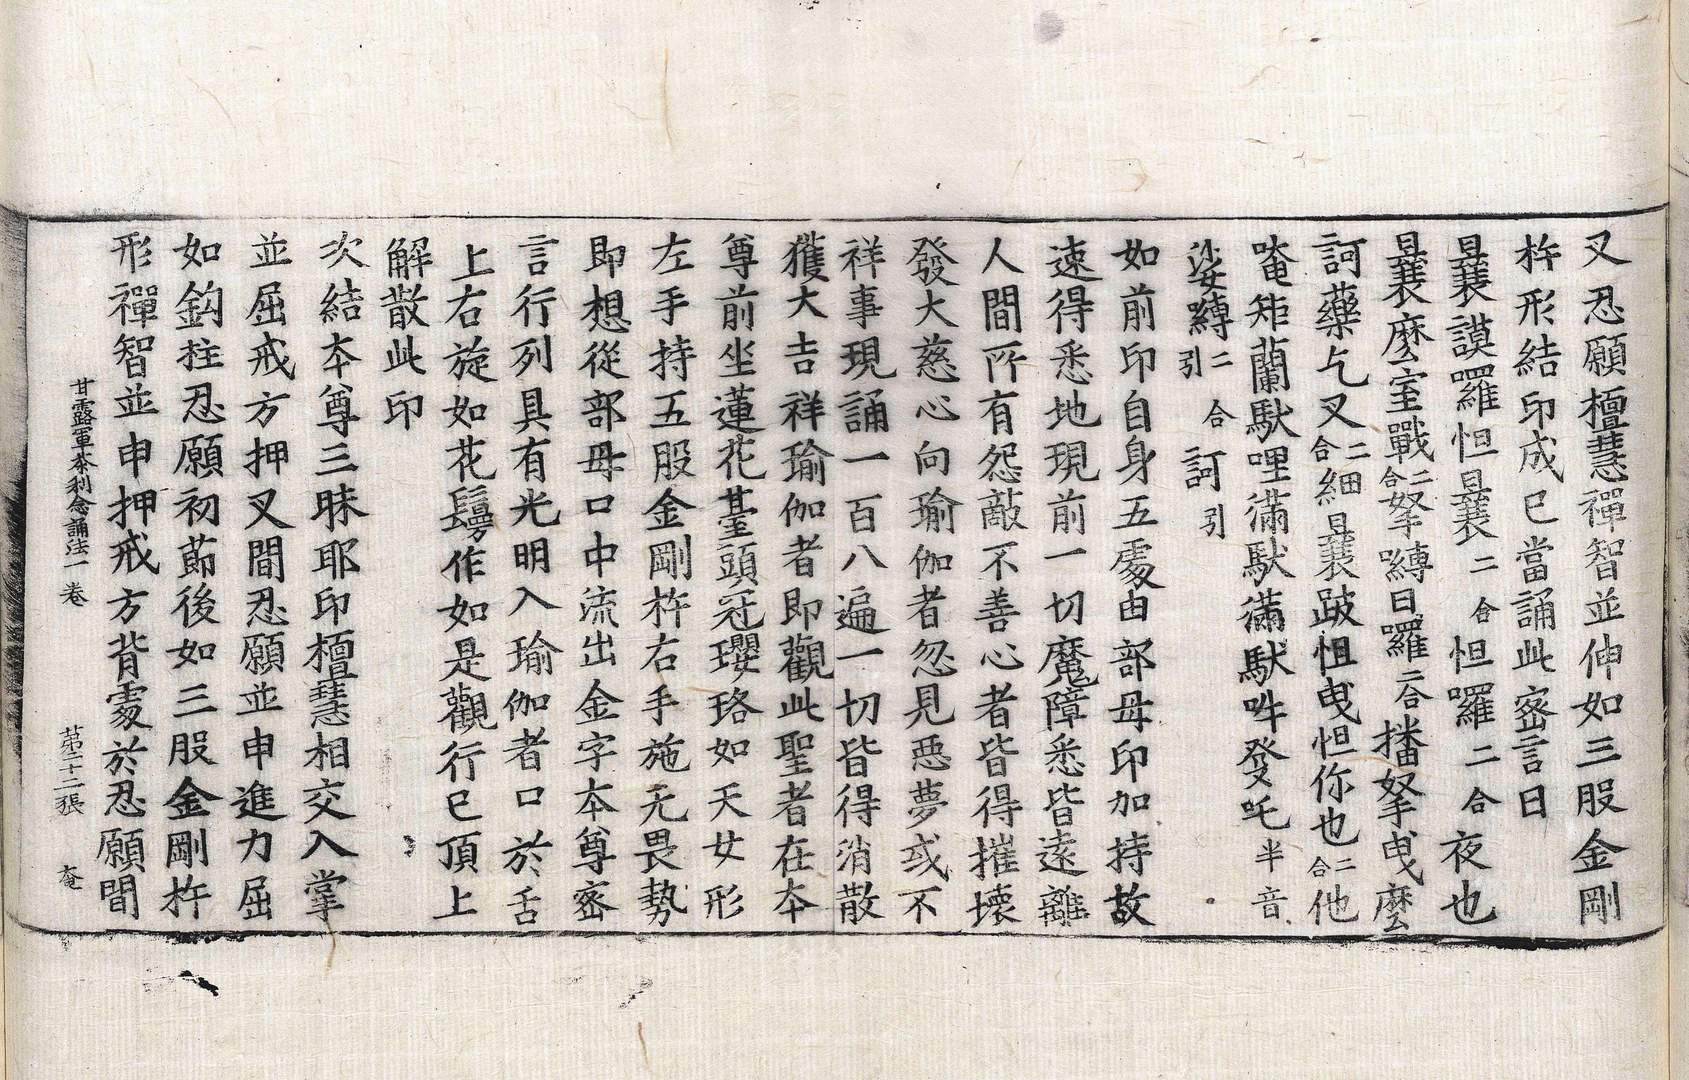 叉忍願檀慧禪智並伸如三股金剛
杵形結印成已當誦此密言曰
曩謨羅怛曩二合怛羅二合夜也
曩麼室戰二合拏嚩日羅二合播拏曳麼
訶藥乞叉二合細曩跛怛曳怛你也二合他
唵矩蘭馱哩滿馱滿馱吽癹吒半音
娑嚩二合引訶引
如前印自身五處由部母印加持故
速得悉地現前一切魔障悉皆遠離
人間所有怨敵不善心者皆得摧壞
發大慈心向瑜伽者忽見惡夢或不
祥事現誦一百八遍一切皆得消散
獲大吉祥瑜伽者即觀此聖者在本
尊前坐蓮花臺頭冠瓔珞如天女形
左手持五股金剛杵右手施无畏勢
即想從部母口中流出金字本尊密
言行列具有光明入瑜伽者口於舌
上右旋如花鬘作如是觀行已頂上
解散此印
次結本尊三昧耶印檀慧相交入掌
並屈戒方押叉間忍願並申進力屈
如鈎拄忍願初節後如三股金剛杵
形禪智並申押戒方背處於忍願間
甘露軍荼利念誦法一卷 第二十二張 奄